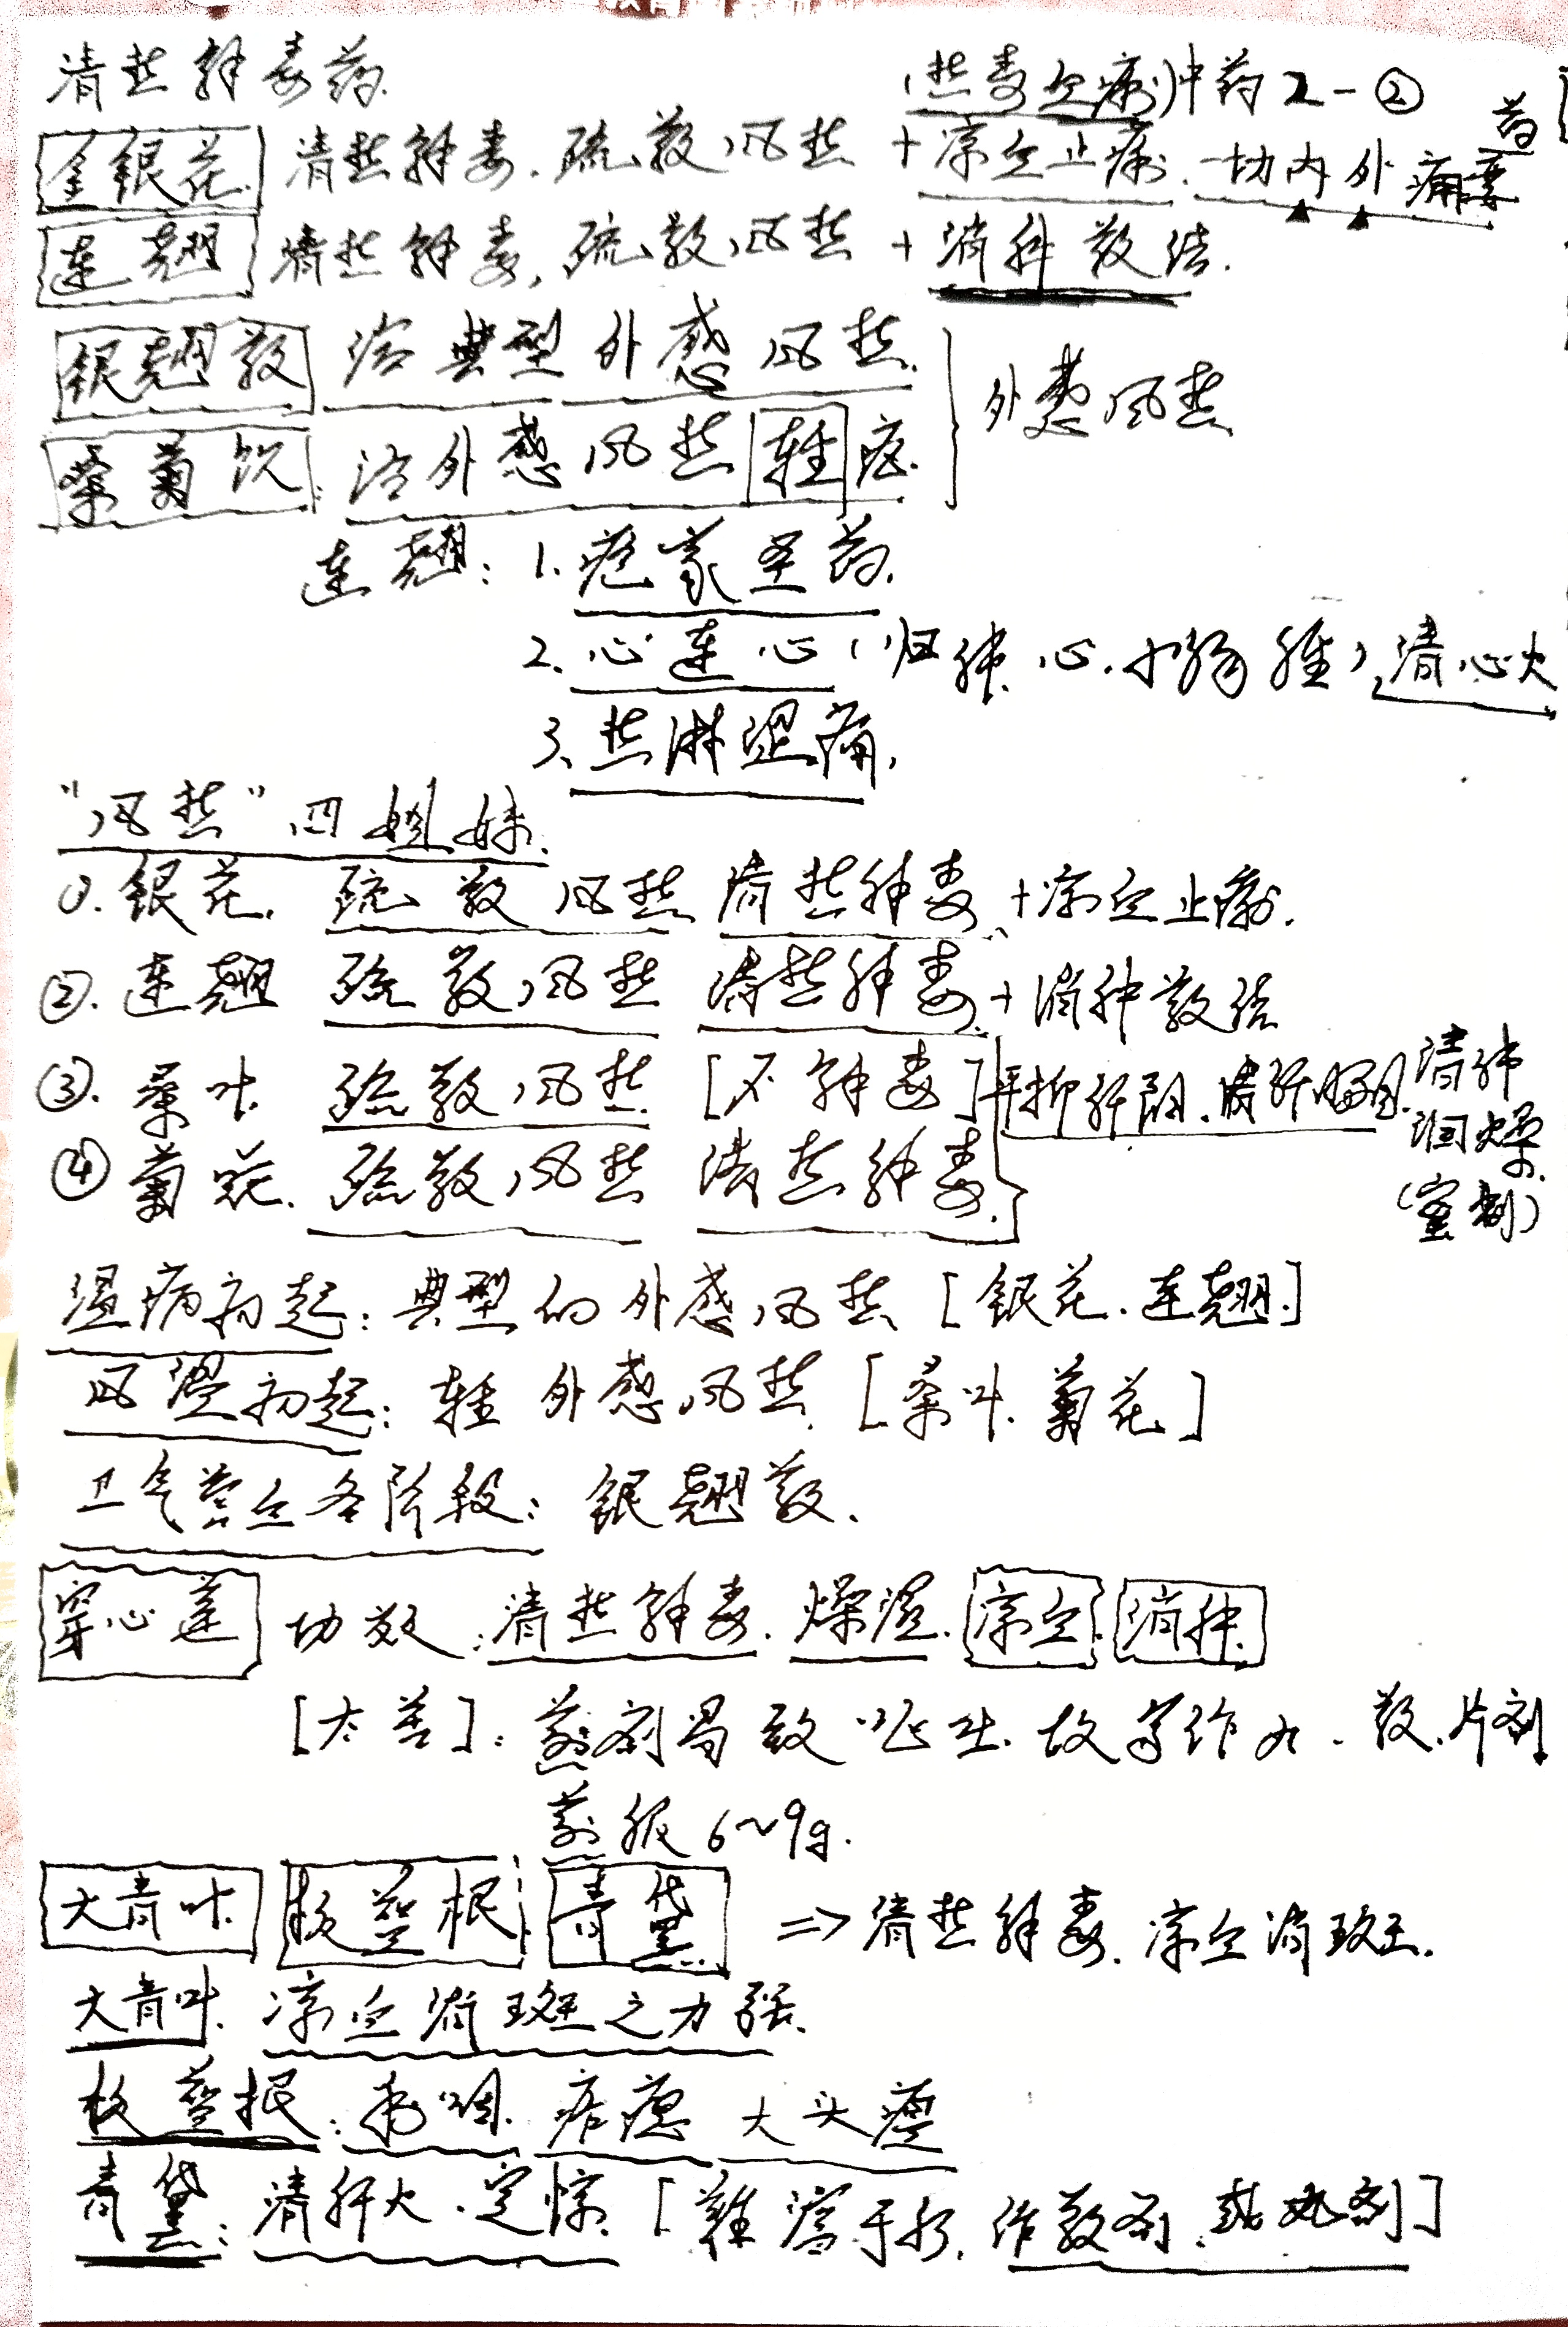 清热解毒药
(热毒血痢)中药2-②
金银花 清热解毒.疏散风热+凉血止痢.一切内外痈要药
连翘 清热解毒,疏散风热+消肿散结.
银翘散 治典型外感风热.
桑菊饮:治外感风热轻症.
外感风热
连翘:1.疮家圣药.
2.心连心(归肺.心.小肠经)清心火
3.热淋涩痛.
"风热"四姐妹.
①.银花.疏散风热 清热解毒、+凉血止痢.
②.连翘 疏散风热 清热解毒+消肿散结
③.桑叶 疏散风热 [不解毒]
平抑肝阳.清肝明目.清肺润燥(蜜制)
④菊花.疏散风热 清热解毒.
温病初起:典型的外感风热[银花.连翘.]
风温初起:轻外感风热.[桑叶.菊花]
卫气营血各阶段:银翘散.
穿心莲 功效:清热解毒.燥湿.凉血.消肿.
[太苦]:煎剂易致呕吐.故多作丸.散.片剂
煎服6~9g.
大青叶.板蓝根 青黛 ⇒清热解毒.凉血消斑.
大青叶.凉血消斑之力强.
板蓝根:利咽.痄腮 大头瘟
青黛:清肝火.定惊.[难溶于水.作散剂.或丸剂]